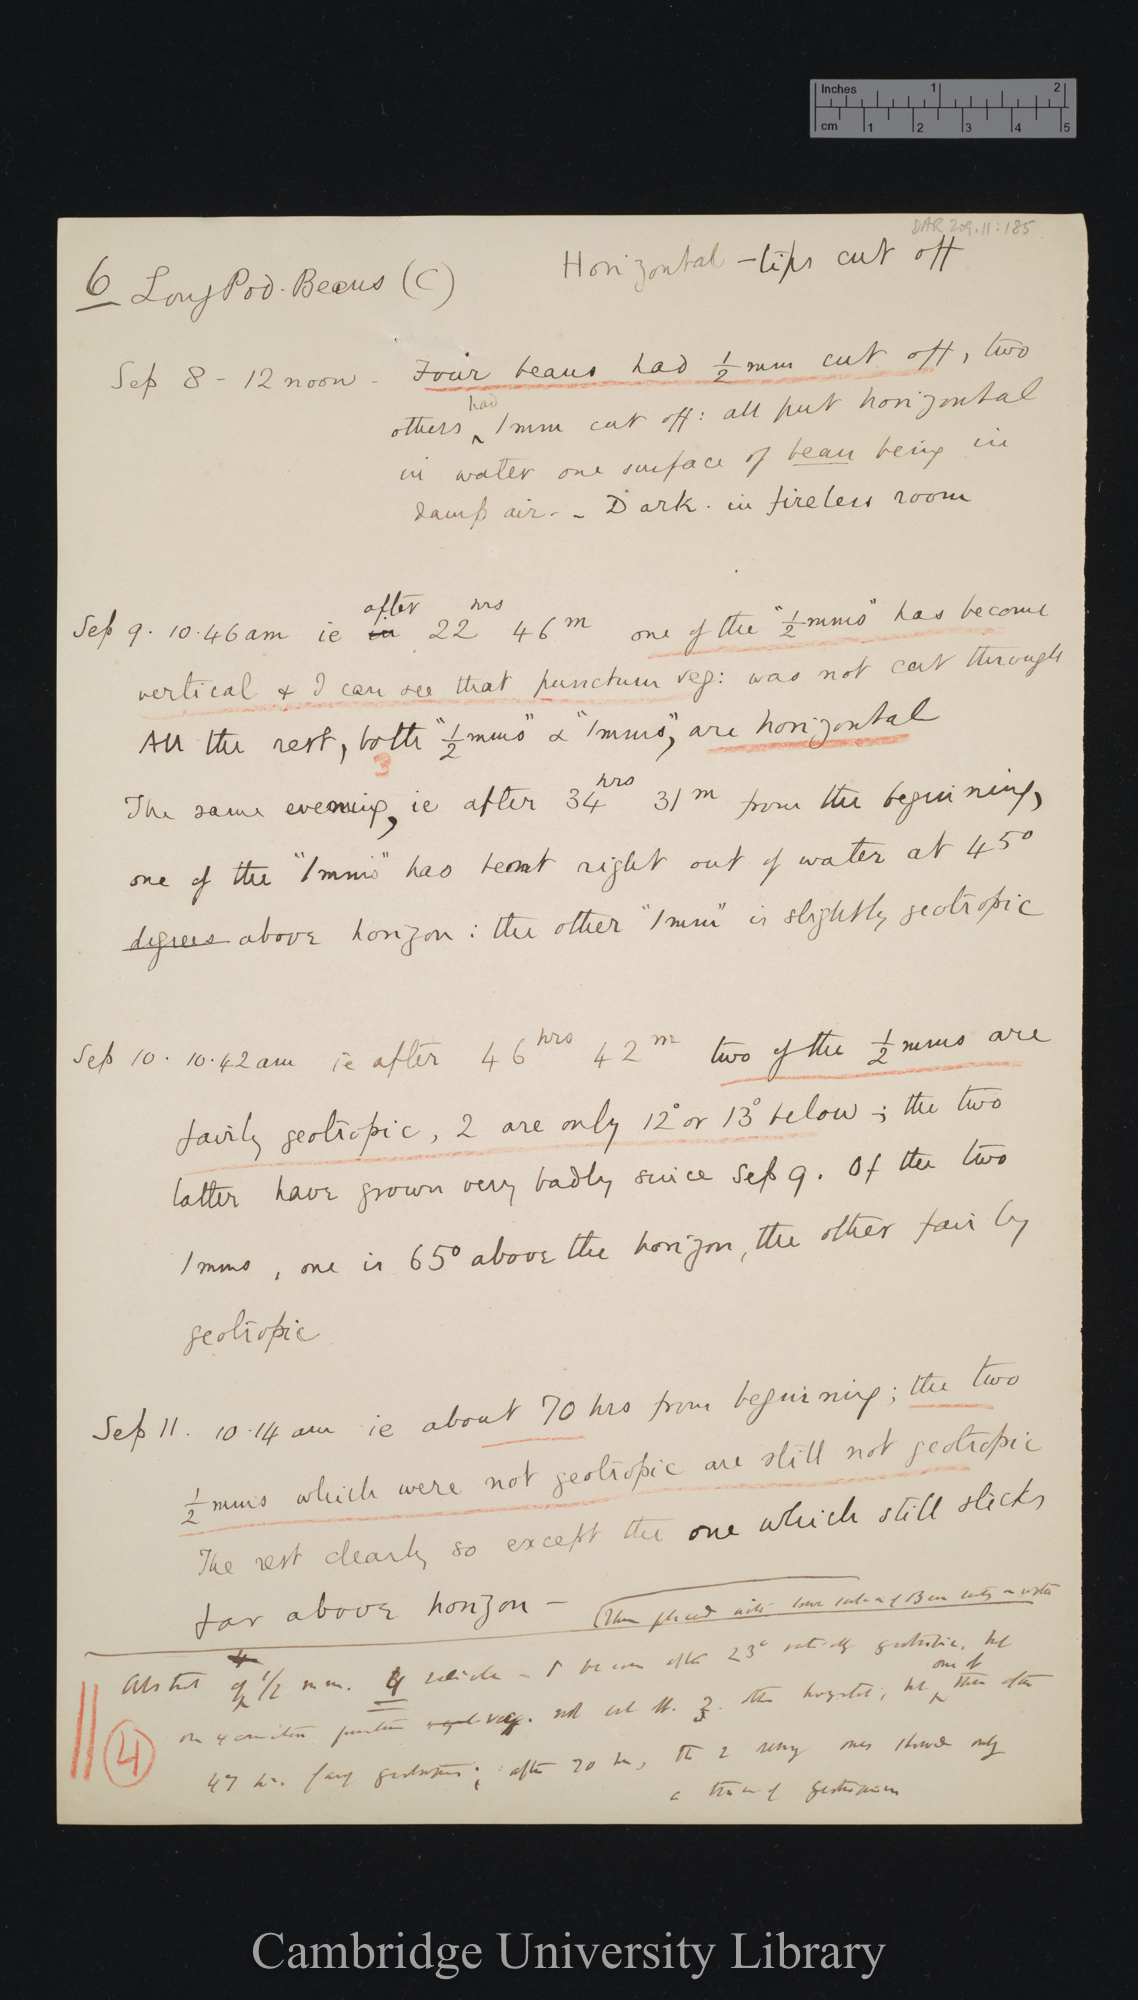 Inches 1 2
cm 1 2 3 4 5
DAR 209.11:185
6 Long Pod. Beans (C)
Horizontal - tips cut off
Sep 8 - 12 noon - Four beans had 1/2 mm cut off, two
others had 1mm cut off: all put horizontal
in water one surface of bean being in
damp air. - Dark. in fireless room
Sep 9. 10.46 am ie in after 22 hrs 46 m one of the "1/2 mms" has become
vertical & I can see that punctum veg: was not cut through
All the rest, both "1/2 mms" & "1mms", are horizontal
3
The same evening, ie after 34 hrs 31 m from the beginning,
one of the "1mms" has bent right out of water at 45°
degrees above horizon: the other "1mm" is slightly geotropic
Sep 10. 10.42 am ie after 46 hrs 42 m two of the 1/2 mms are
fairly geotropic, 2 are only 12° or 13° below; the two
latter have grown very badly since Sep 9. Of the two
1mms, one is 65° above the horizon, the other fairly
geotropic
Sep 11. 10.14 am ie about 70 hrs from beginning; the two
1/2 mms which were not geotropic are still not geotropic
The rest clearly so except the one which still sticks
far above horizon -
(Then placed with lower surface of Bean in water
Abstract of 1/2 mm. 4 radicle - 1 became after 23° geotropic, but
on examination punctum veg. not cut off. 3 other horizontal; but one of then after
4
47 hr. geotropic; after 70 hr, the 2 ones showed only
a trace of geotropism
Cambridge University Library